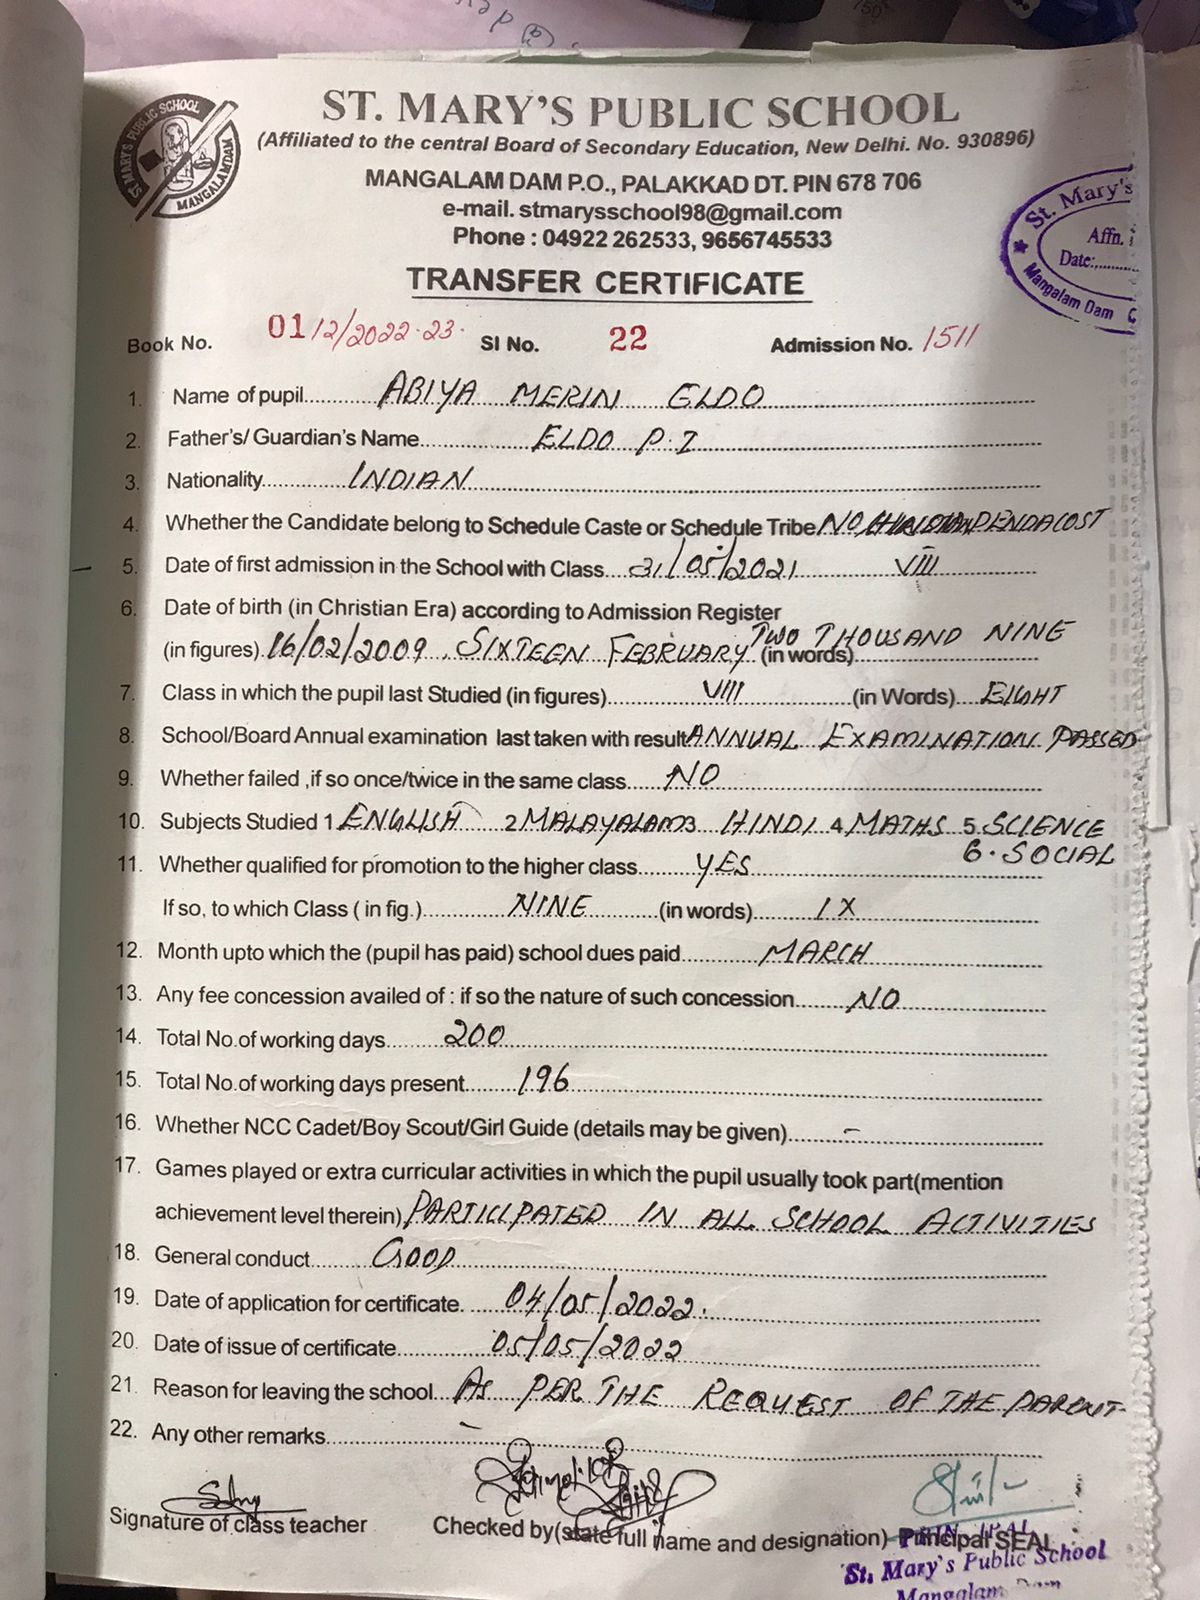 ST. MARY'S PUBLIC SCHOOL
(Affiliated to the central Board of Secondary Education, New Delhi. No. 930896)
MANGALAM DAM P.O., PALAKKAD DT. PIN 678 706
e-mail. stmarysschool98@gmail.com
Phone : 04922 262533, 9656745533
ST MARY'S PUBLIC SCHOOL
MANGALAMDAM
St. Mary's
Affn.
Date:
Mangalam Dam
TRANSFER CERTIFICATE
Book No. 01/12/2022-23. Sl No. 22 Admission No. 1511
1. Name of pupil ABIYA MERIN ELDO
2. Father's/ Guardian's Name ELDO P.I
3. Nationality INDIAN
4. Whether the Candidate belong to Schedule Caste or Schedule Tribe NO, CHRISTIAN, PENDACOST
5. Date of first admission in the School with Class 31/05/2021 VIII
6. Date of birth (in Christian Era) according to Admission Register
(in figures) 16/02/2009 (in words) SIXTEEN FEBRUARY TWO THOUSAND NINE
7. Class in which the pupil last Studied (in figures) VIII (in Words) EIGHT
8. School/Board Annual examination last taken with result ANNUAL EXAMINATION PASSED
9. Whether failed ,if so once/twice in the same class NO
10. Subjects Studied 1 ENGLISH 2 MALAYALAM 3 HINDI 4 MATHS 5 SCIENCE
6. SOCIAL
11. Whether qualified for promotion to the higher class YES
If so, to which Class ( in fig.) NINE (in words) IX
12. Month upto which the (pupil has paid) school dues paid MARCH
13. Any fee concession availed of : if so the nature of such concession NO
14. Total No.of working days 200
15. Total No.of working days present 196
16. Whether NCC Cadet/Boy Scout/Girl Guide (details may be given) -
17. Games played or extra curricular activities in which the pupil usually took part(mention
achievement level therein) PARTICIPATED IN ALL SCHOOL ACTIVITIES
18. General conduct GOOD
19. Date of application for certificate. 04/05/2022.
20. Date of issue of certificate 05/05/2022
21. Reason for leaving the school AS PER THE REQUEST OF THE PARENT
22. Any other remarks -
Signature of class teacher Checked by(state full name and designation) Principal SEAL
PRINCIPAL
St. Mary's Public School
Mangalam Dam